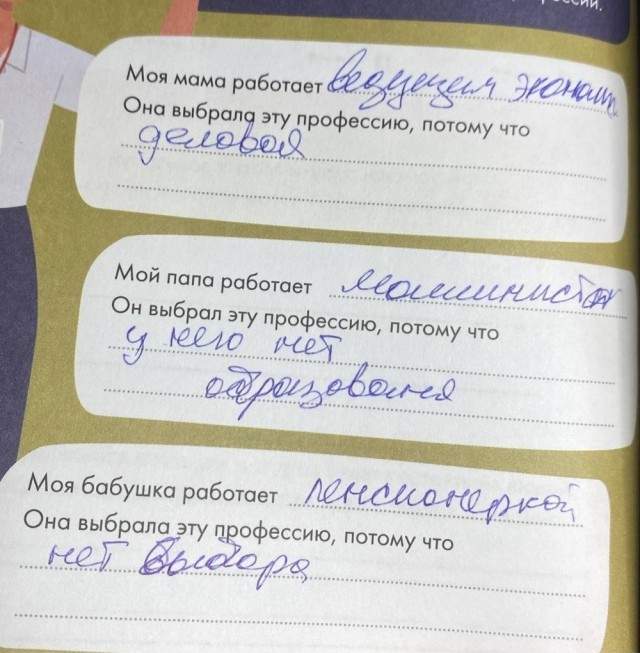 Моя мама работает ведущем эконом
Она выбрала эту профессию, потому что
деловая
Мой папа работает
Он выбрал эту профессию, потому что
у него нет
образования
Моя бабушка работает пенсионеркой
Она выбрала эту профессию, потому что
нет выбора